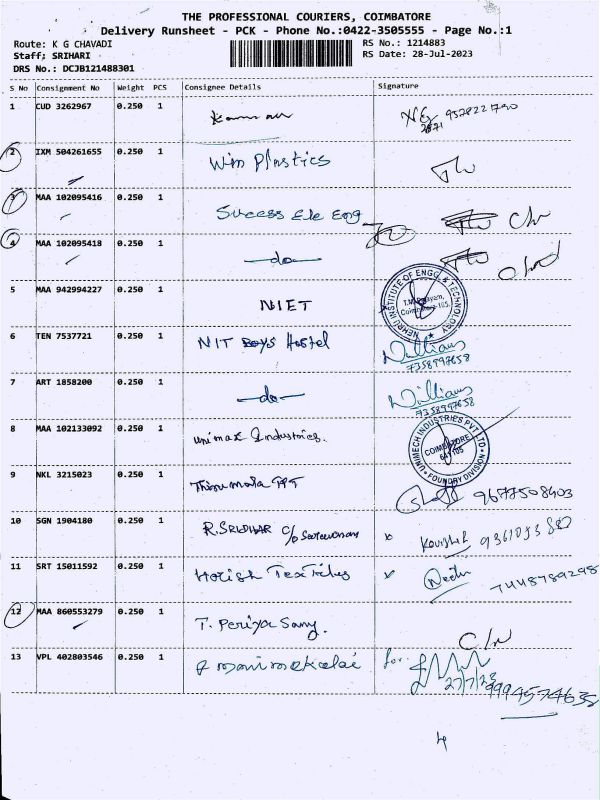 THE PROFESSIONAL COURIERS, COIMBATORE
Delivery Runsheet - PCK - Phone No.:0422-3505555 - Page No.:1
Route: K G CHAVADI
RS No.: 1214883
Staff: SRIHARI
RS Date: 28-Jul-2023
DRS No.: DCJB121488301
S No Consignment No Weight PCS Consignee Details Signature
1 CUD 3262967 0.250 1 9578221790
2 IXM 504261655 0.250 1 Win Plastics
3 MAA 102095416 0.250 1 Success Ele Eng
4 MAA 102095418 0.250 1 -do-
5 MAA 942994227 0.250 1 NIET
NEHRU INSTITUTE OF ENGG & TECHNOLOGY
T.M. Palayam,
Coimbatore-105.
6 TEN 7537721 0.250 1 NIT Boys Hostel Williams
7358997658
7 ART 1858200 0.250 1 -do- Williams
9358997658
8 MAA 102133092 0.250 1 Unimax Industries.
UNIMECH INDUSTRIES PVT LTD
COIMBATORE
641 105
FOUNDRY DIVISION
9 NKL 3215023 0.250 1 Thirumala TPT 9677508403
10 SGN 1904180 0.250 1 R. SRIDHAR C/o Saravanan
11 SRT 15011592 0.250 1 Harish Textiles 7448789298
12 MAA 860553279 0.250 1 T. Periya Samy.
13 VPL 402803546 0.250 1 P manimekalai for.
27/7/23
9994574635